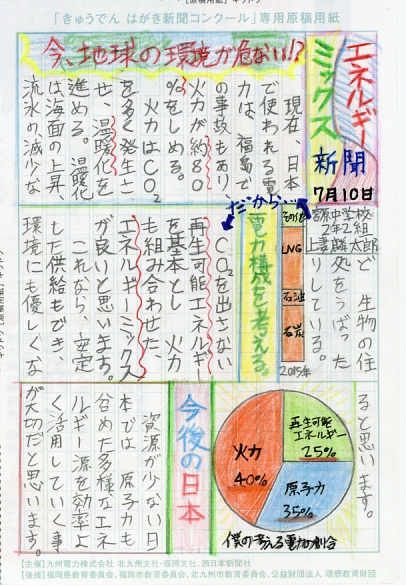 「きゅうでん はがき新聞コンクール」専用原稿用紙
エネルギー
ミックス
新聞
7月10日
2年2組
今、地球の環境が危ない!?
現在、日本
で使われる電
力は、福島で
の事故もあり、
火力が約80
%をしめる。
火力はCO₂
を多く発生さ
せ、温暖化を
進める。温暖化
は海面の上昇、
流氷の減少な
ど、生物の住
処をうばった
りしている。
その他
LNG
石油
石炭
2015年
だから…
電力構成を考える。
CO₂を出さない
再生可能エネルギー
を基本とし、火力
も組み合わせた、
エネルギーミックス
が良いと思います。
これなら、安定
した供給もでき、
環境にも優しくな
ると思います。
再生可能
エネルギー
25%
原子力
35%
火力
40%
僕の考える電力の割合
今後の日本
資源が少ない日
本では、原子力も
含めた多様なエネ
ルギー源を効率よ
く活用していく事
が大切だと思います。
【主催】九州電力株式会社 北九州支社・福岡支社、西日本新聞社
【後援】福岡県教育委員会、福岡市教育委員会、北九州市教育委員会、公益財団法人 理想教育財団